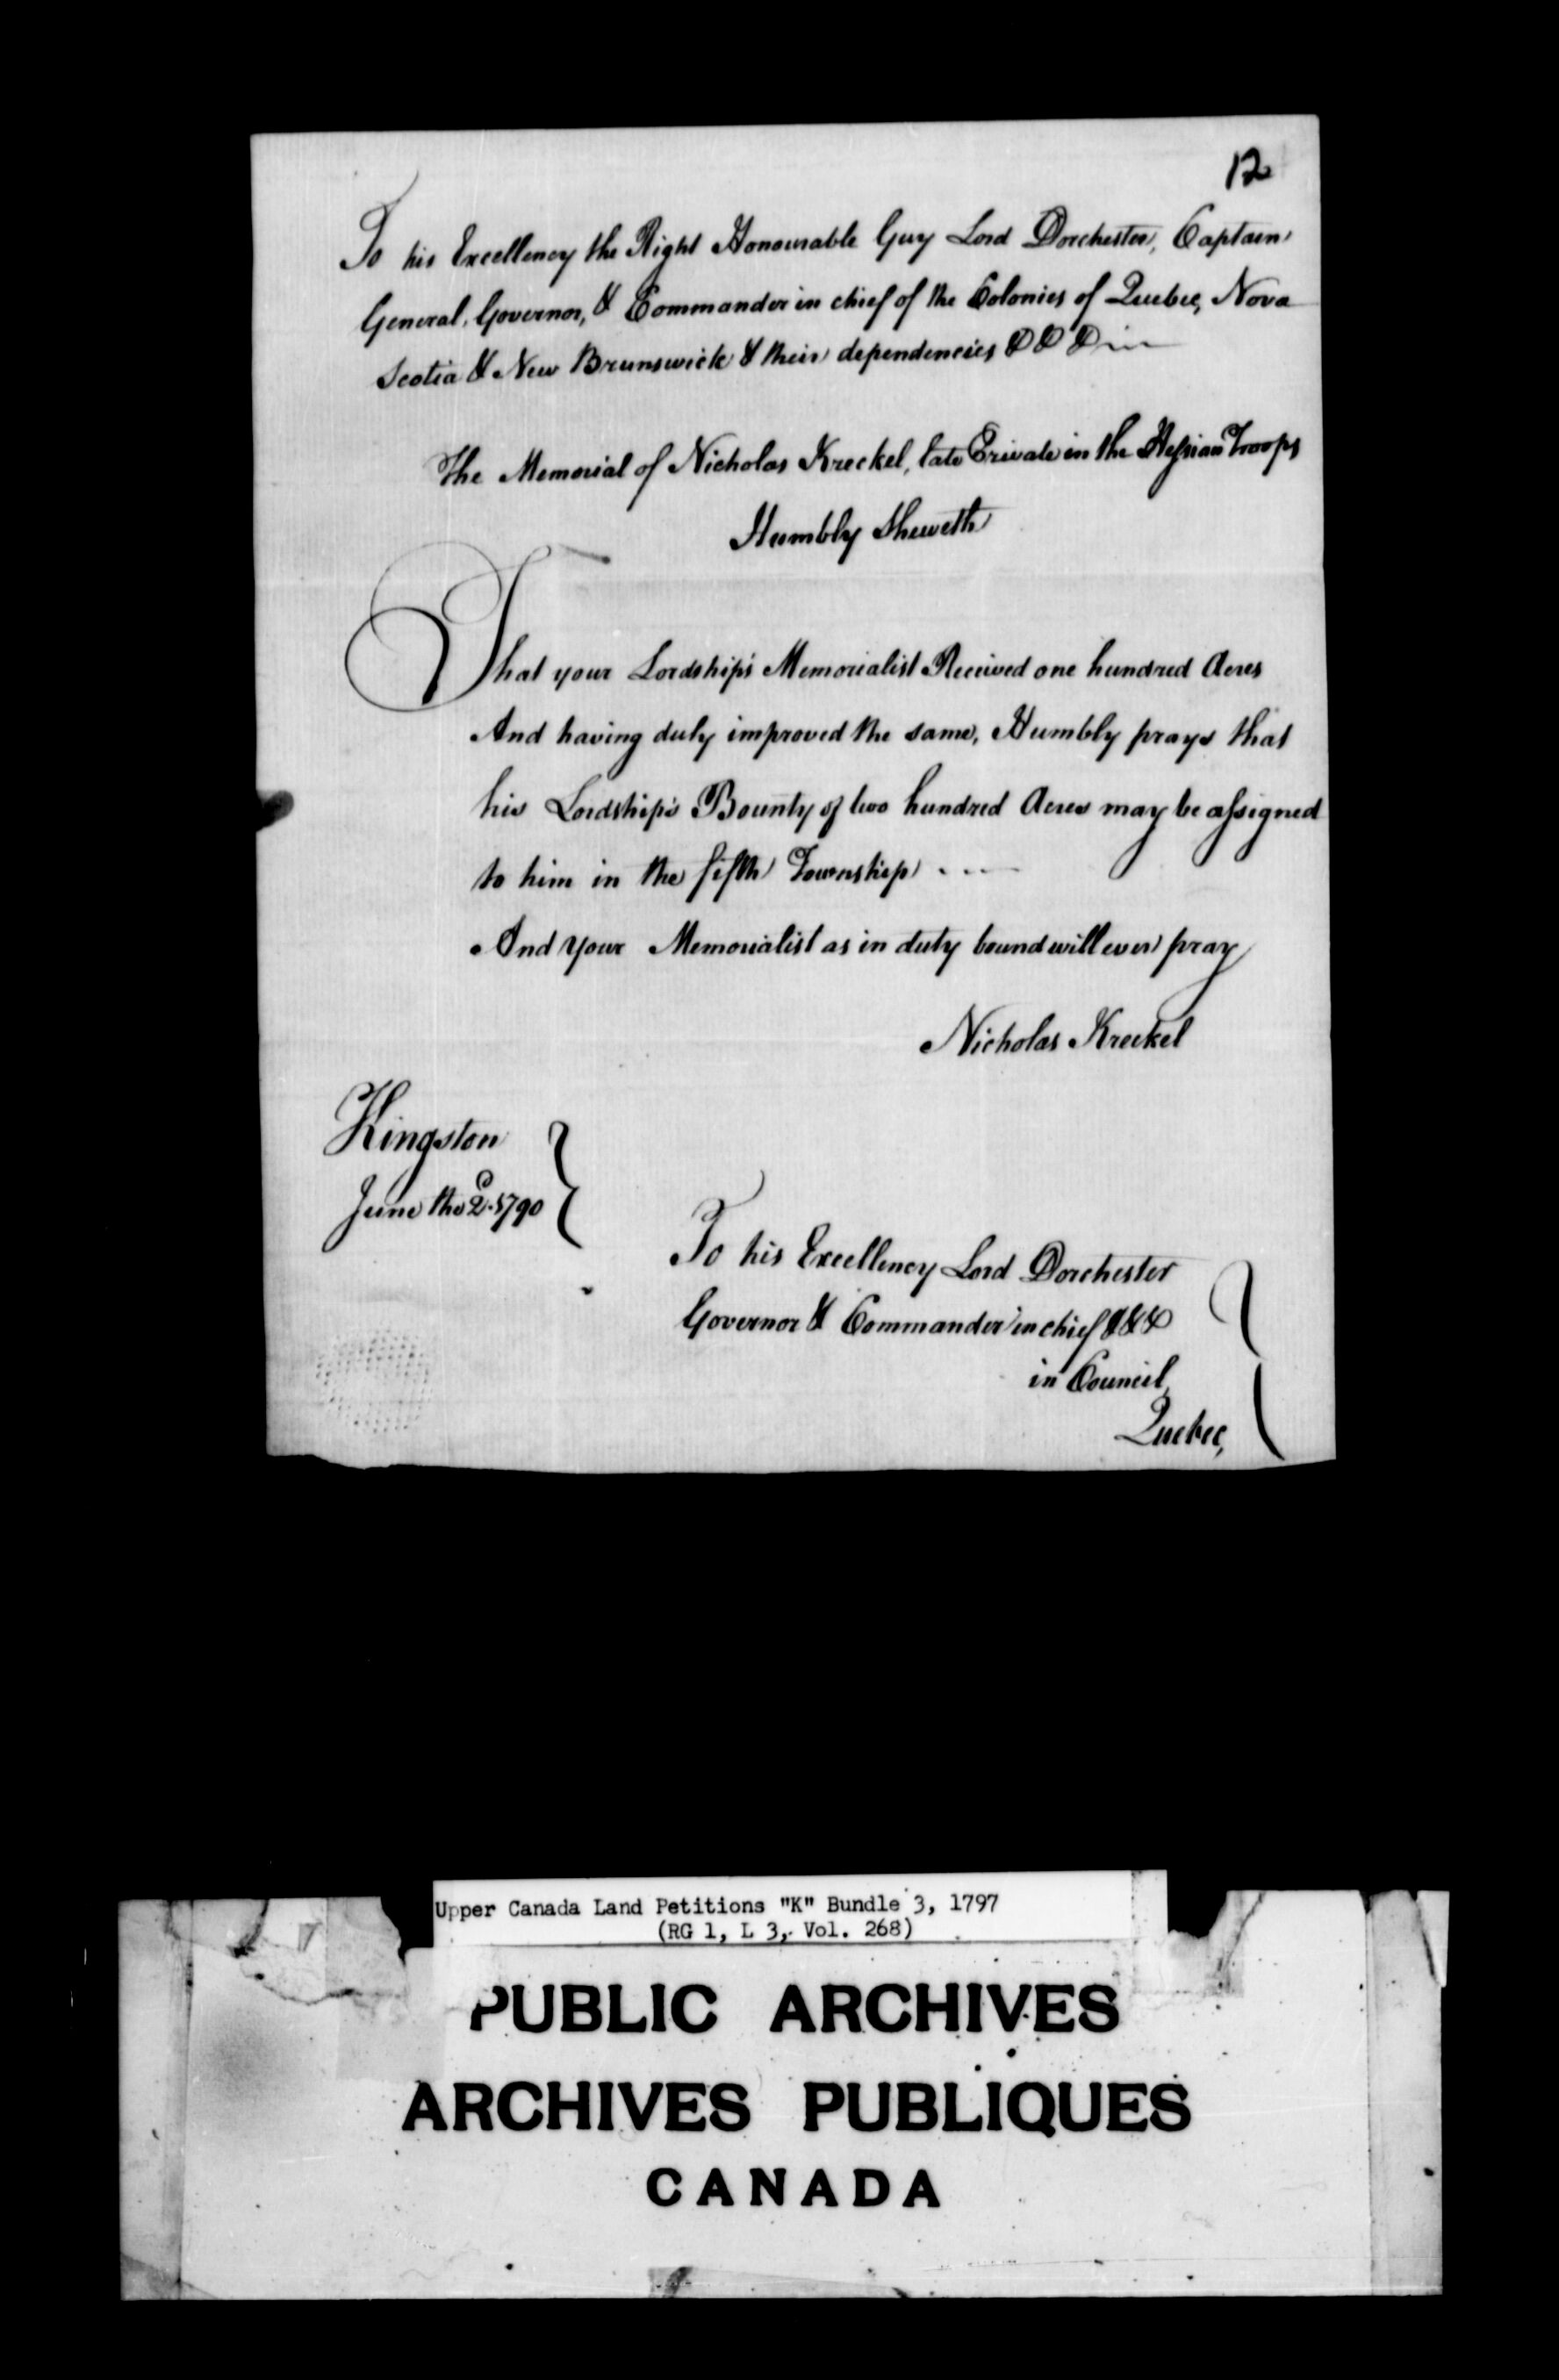 12
To his Excellency the Right Honourable Guy Lord Dorchester, Captain
General, Governor, & Commander in chief of the Colonies of Quebec, Nova
Scotia & New Brunswick & their dependencies & & &
The Memorial of Nicholas Kreckel, late Private in the Hessian Troops
Humbly Sheweth
That your Lordship's Memorialist Received one hundred Acres
And having duly improved the same, Humbly prays that
his Lordship's Bounty of two hundred Acres may be assigned
to him in the fifth Township . - -
And your Memorialist as in duty bound will ever pray
Nicholas Kreckel
Kingston
June the 2. 1790
To his Excellency Lord Dorchester
Governor & Commander in chief &&&
in Council,
Quebec,
Upper Canada Land Petitions "K" Bundle 3, 1797
(RG 1, L 3, Vol. 268)
PUBLIC ARCHIVES
ARCHIVES PUBLIQUES
CANADA